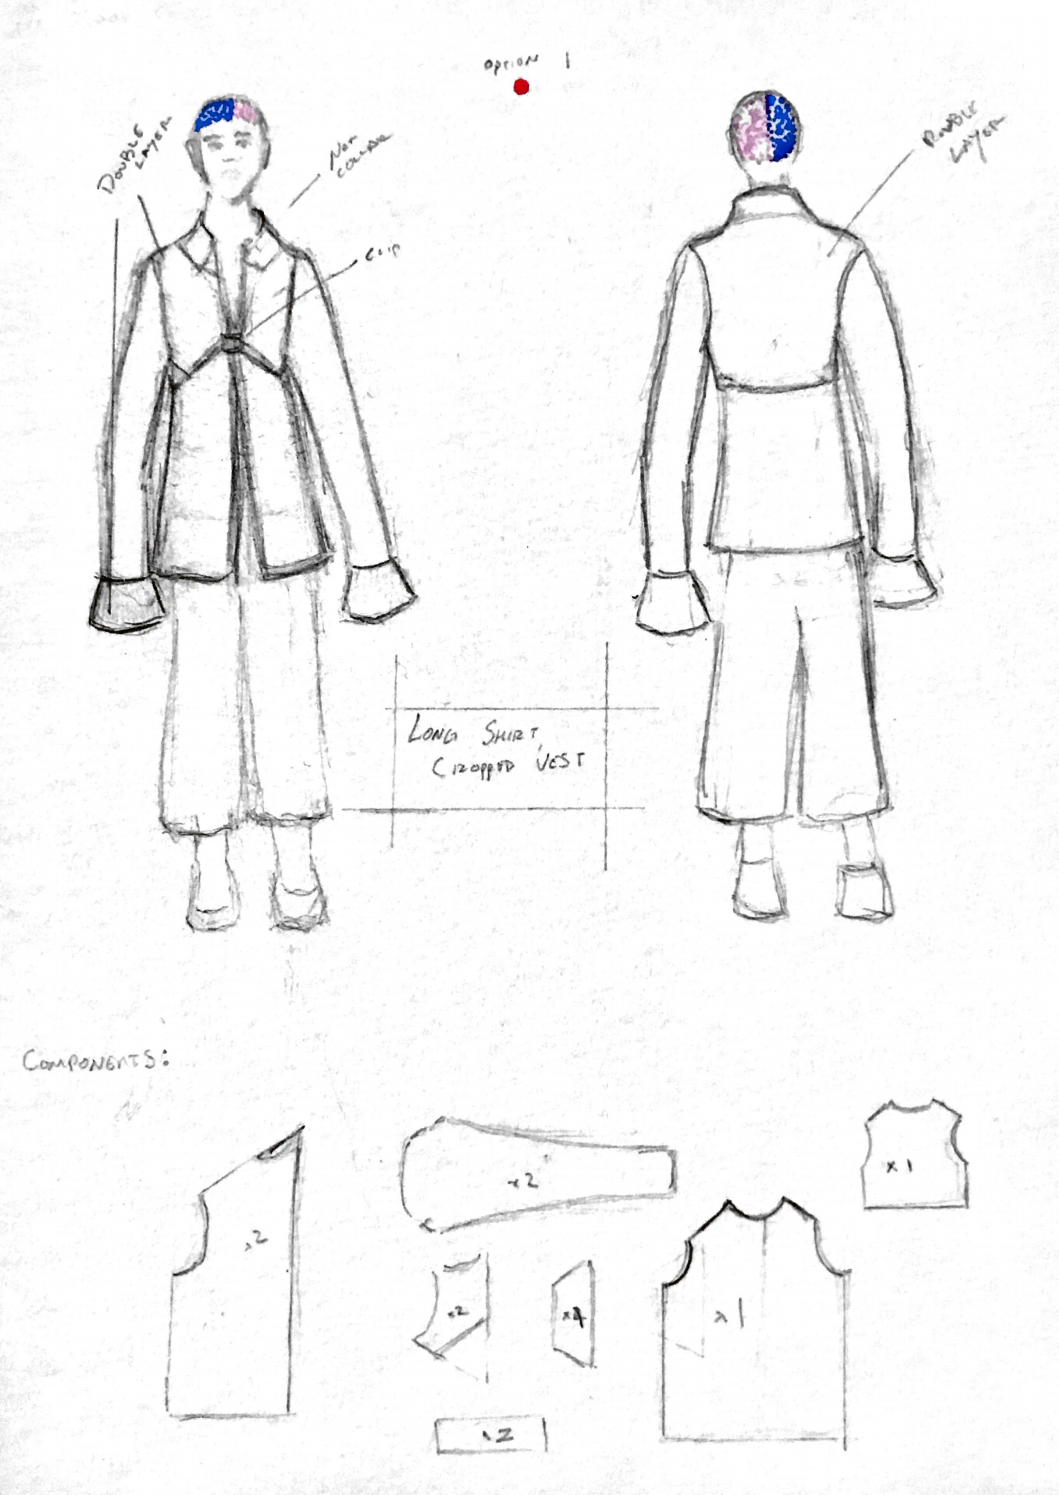 OPTION 1
DOUBLE
LAYER
COLLAR
CLIP
DOUBLE
LAYER
LONG SHIRT,
CROPPED VEST
COMPONENTS:
x2
x2
x1
x2
x4
x1
x2